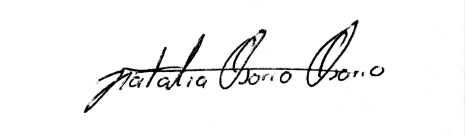 Natalia Osorio Osorio